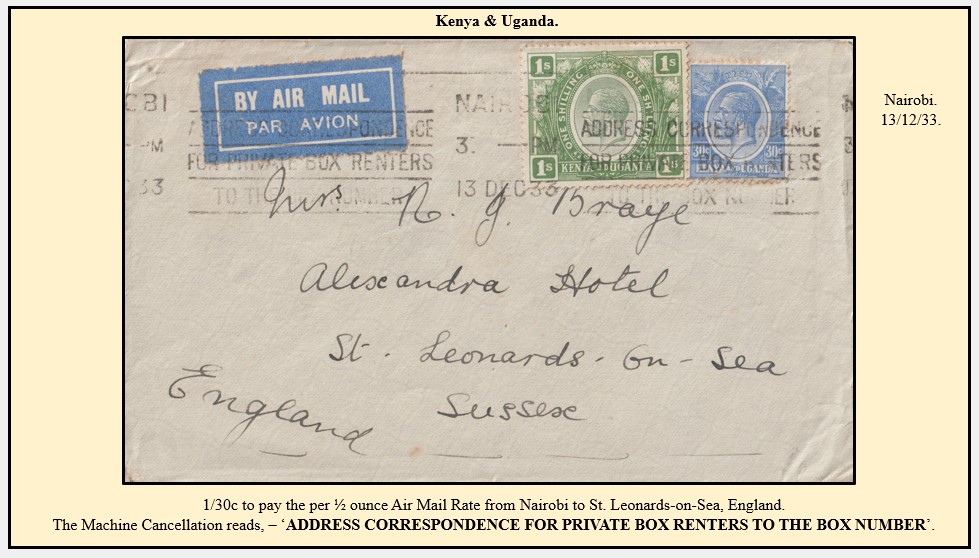 Kenya & Uganda.
BY AIR MAIL
PAR AVION
1s 1s
ONE SHILLING ONE SHILLING
1s 1s
KENYA UGANDA
30c 30c
KENYA UGANDA
NAIROB
3. PM
13 DEC 33
ADDRESS CORRESPONDENCE
FOR PRIVATE BOX RENTERS
TO TH NUMBER
ADDRESS CORRESPONDENCE
FOR PRIV BOX TERS
BOX N
OBI
PM
C 33
Nairobi.
13/12/33.
Mrs. R. G. Braye
Alexandra Hotel
St. Leonards-on-Sea
Sussex
England
1/30c to pay the per ½ ounce Air Mail Rate from Nairobi to St. Leonards-on-Sea, England.
The Machine Cancellation reads, – ‘ADDRESS CORRESPONDENCE FOR PRIVATE BOX RENTERS TO THE BOX NUMBER’.